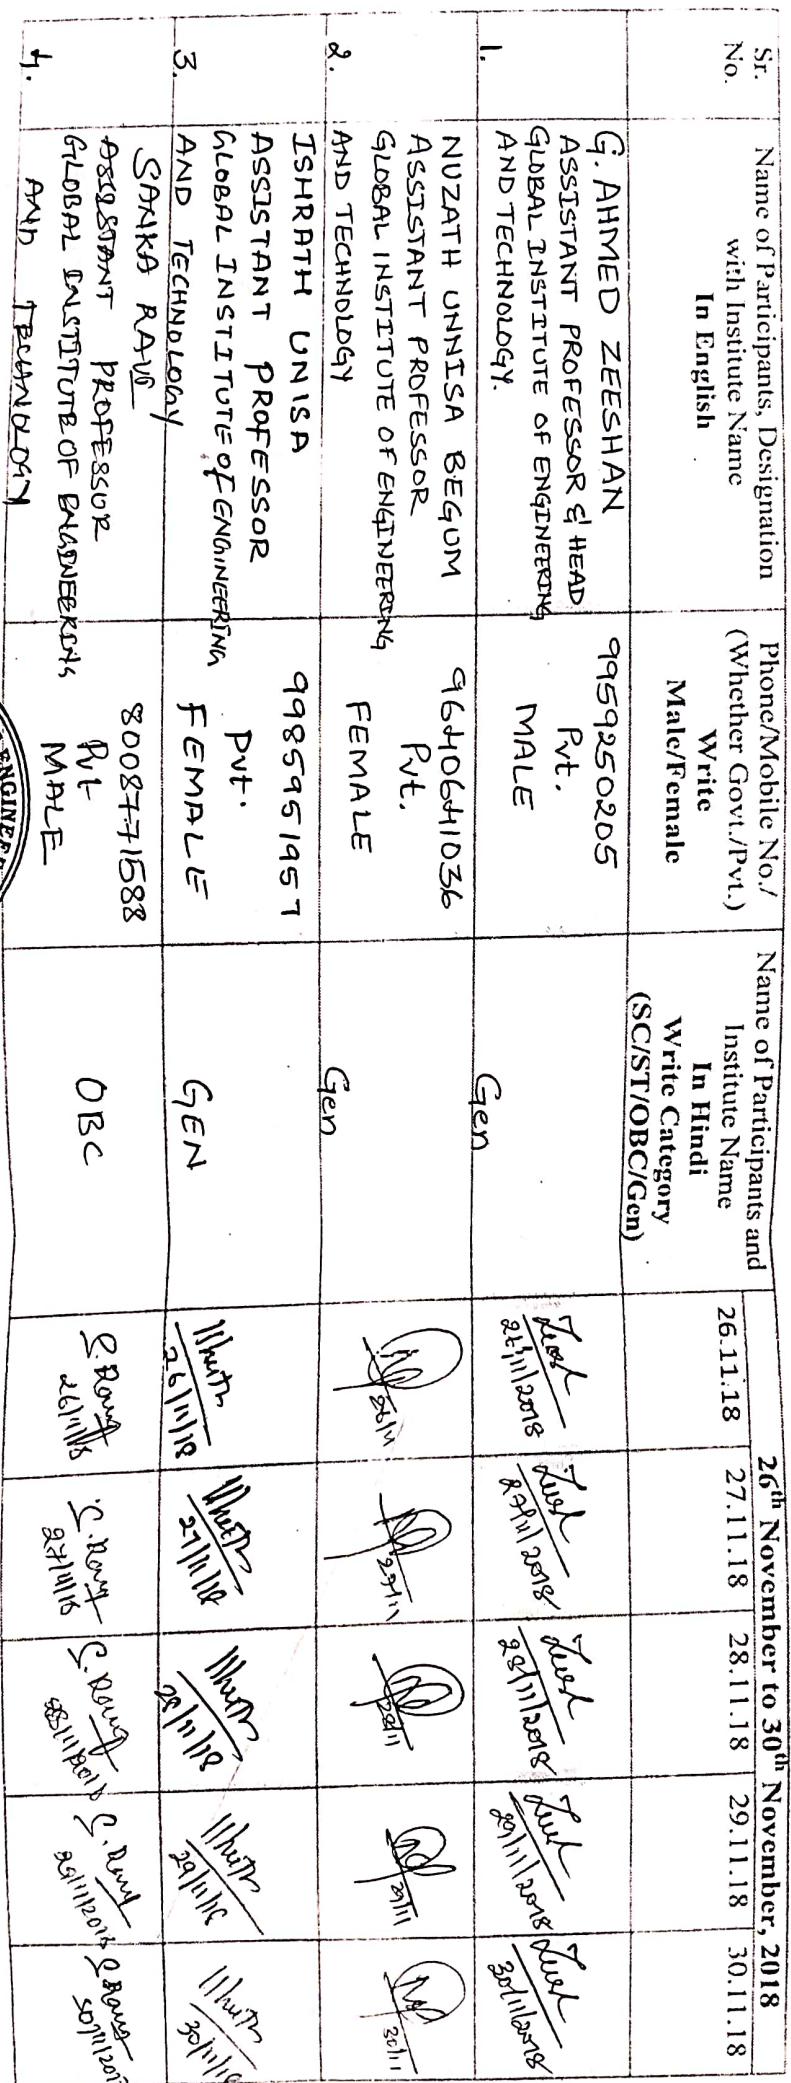 Sr.
No.
Name of Participants, Designation
with Institute Name
In English
Phone/Mobile No./
(Whether Govt./Pvt.)
Write
Male/Female
Name of Participants and
Institute Name
In Hindi
Write Category
(SC/ST/OBC/Gen)
26th November to 30th November, 2018
26.11.18
27.11.18
28.11.18
29.11.18
30.11.18
1.
G. AHMED ZEESHAN
ASSISTANT PROFESSOR & HEAD
GLOBAL INSTITUTE OF ENGINEERING
AND TECHNOLOGY.
9959250205
Pvt.
MALE
Gen
26/11/2018
27/11/2018
28/11/2018
29/11/2018
30/11/2018
2.
NUZATH UNNISA BEGUM
ASSISTANT PROFESSOR
GLOBAL INSTITUTE OF ENGINEERING
AND TECHNOLOGY
9640641036
Pvt.
FEMALE
Gen
26/11
27/11
28/11
29/11
30/11
3.
ISHRATH UNISA
ASSISTANT PROFESSOR
GLOBAL INSTITUTE OF ENGINEERING
AND TECHNOLOGY
9985951957
Pvt.
FEMALE
GEN
26/11/18
27/11/18
28/11/18
29/11/18
30/11/18
4.
SANKA RAVI
ASSISTANT PROFESSOR
GLOBAL INSTITUTE OF ENGINEERING
AND TECHNOLOGY
8008771588
Pvt
MALE
OBC
26/11/18
27/11/18
28/11/2018
29/11/2018
30/11/201
ENGINEER